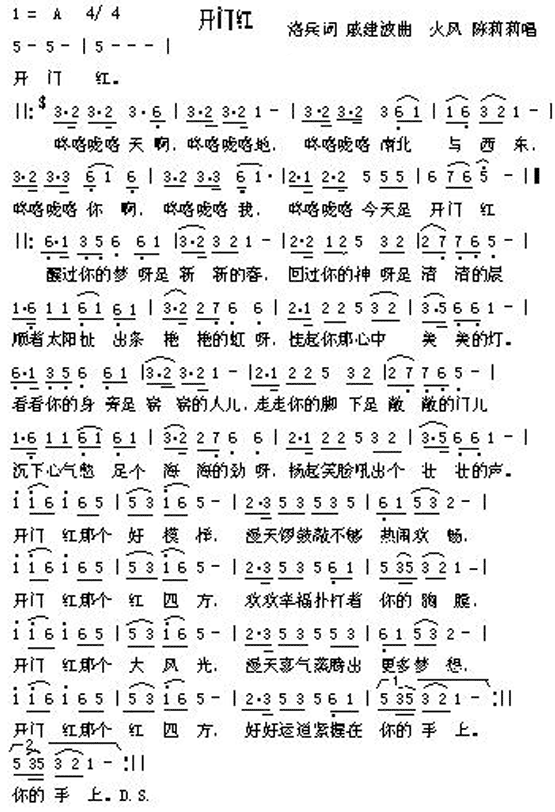 1= A 4/4 开门红 洛兵词 戚建波曲 火风 陈莉莉唱
5 - 5 - | 5 - - - |
开 门 红。
||: 3·2 3·2 3·6 | 3·2 3·2 1 - | 3·2 3·2 3 6 1 | 1 6 3 2 1 - |
咚咯咙咯 天 啊, 咚咯咙咯地, 咚咯咙咯 南北 与 西 东,
3·2 3·3 6 1 6 | 3·2 3·3 6 1· | 2·1 2·2 5 5 5 | 6 7 6 5 - ||
咚咯咙咯 你 啊, 咚咯咙咯 我, 咚咯咙咯 今天是 开门 红
||: 6·1 3 5 6 6 1 | 3·2 3 2 1 - | 2·2 1 2 5 3 2 | 2 7 7 6 5 - |
醒过你的梦 呀是 新 新的春, 回过你的神 呀是 清 清的晨
1·6 1 1 6 1 6 1 | 3·2 2 7 6 6 | 2·1 2 2 5 3 2 | 3·5 6 6 1 - |
顺着太阳扯 出条 艳 艳的虹 呀, 挂起你那心中 美 美的灯。
6·1 3 5 6 6 1 | 3·2 3·2 1 - | 2·1 2 2 5 3 2 | 2 7 7 6 5 - |
看看你的身 旁是 窈 窈的人儿, 走走你的脚 下是 敞 敞的门儿
1·6 1 1 6 1 6 1 | 3·2 2 7 6 6 | 2·1 2 2 5 3 2 | 3·5 6 6 1 - |
沉下心气憋 足个 海 海的劲 呀, 扬起笑脸吼出个 壮 壮的声。
1 1 6 1 6 5 | 5 3 1 6 5 - | 2·3 5 3 5 3 5 | 6 1 5 3 2 - |
开门 红那个 好 模 样, 漫天锣鼓敲不够 热闹欢 畅,
1 1 6 1 6 5 | 5 3 1 6 5 - | 2·3 5 3 5 6 1 | 5 3 5 3 2 1 - |
开门 红那个 红 四 方, 欢欢幸福扑打着 你的 胸 膛,
1 1 6 1 6 5 | 5 3 1 6 5 - | 2·3 5 3 5 5 3 | 6 1 5 3 2 - |
开门 红那个 大 风 光, 漫天喜气蒸腾出 更多梦 想,
1 1 6 1 6 5 | 5 3 1 6 5 - | 2·3 5 3 5 6 1 | 5 3 5 3 2 1 - :||
开门 红那个 红 四 方, 好好运道紧握在 你的 手 上。
5 3 5 3 2 1 - :||
你的 手 上。D.S.